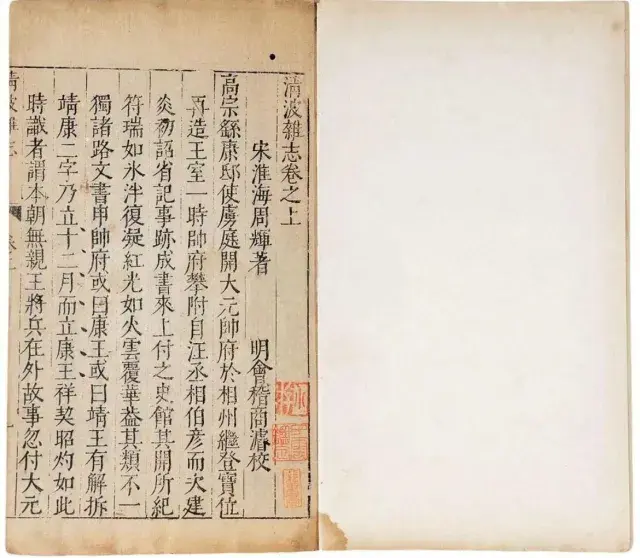 清波雜志卷之上
宋淮海周煇著 明會稽商濬校
高宗繇康邸使虜庭開大元帥府於相州繼登寶位
再造王室一時帥府攀附自汪丞相伯彥而次建
炎初詔省記事跡成書來上付之史館其開所紀
符瑞如氷泮復凝紅光如火雲覆華葢其類不一
獨諸路文書申帥府或曰康王或曰靖王有解拆
靖康二字乃立十二月而立康王祥契昭灼如此
時識者謂本朝無親王將兵在外故事忽付大元
清波雜志